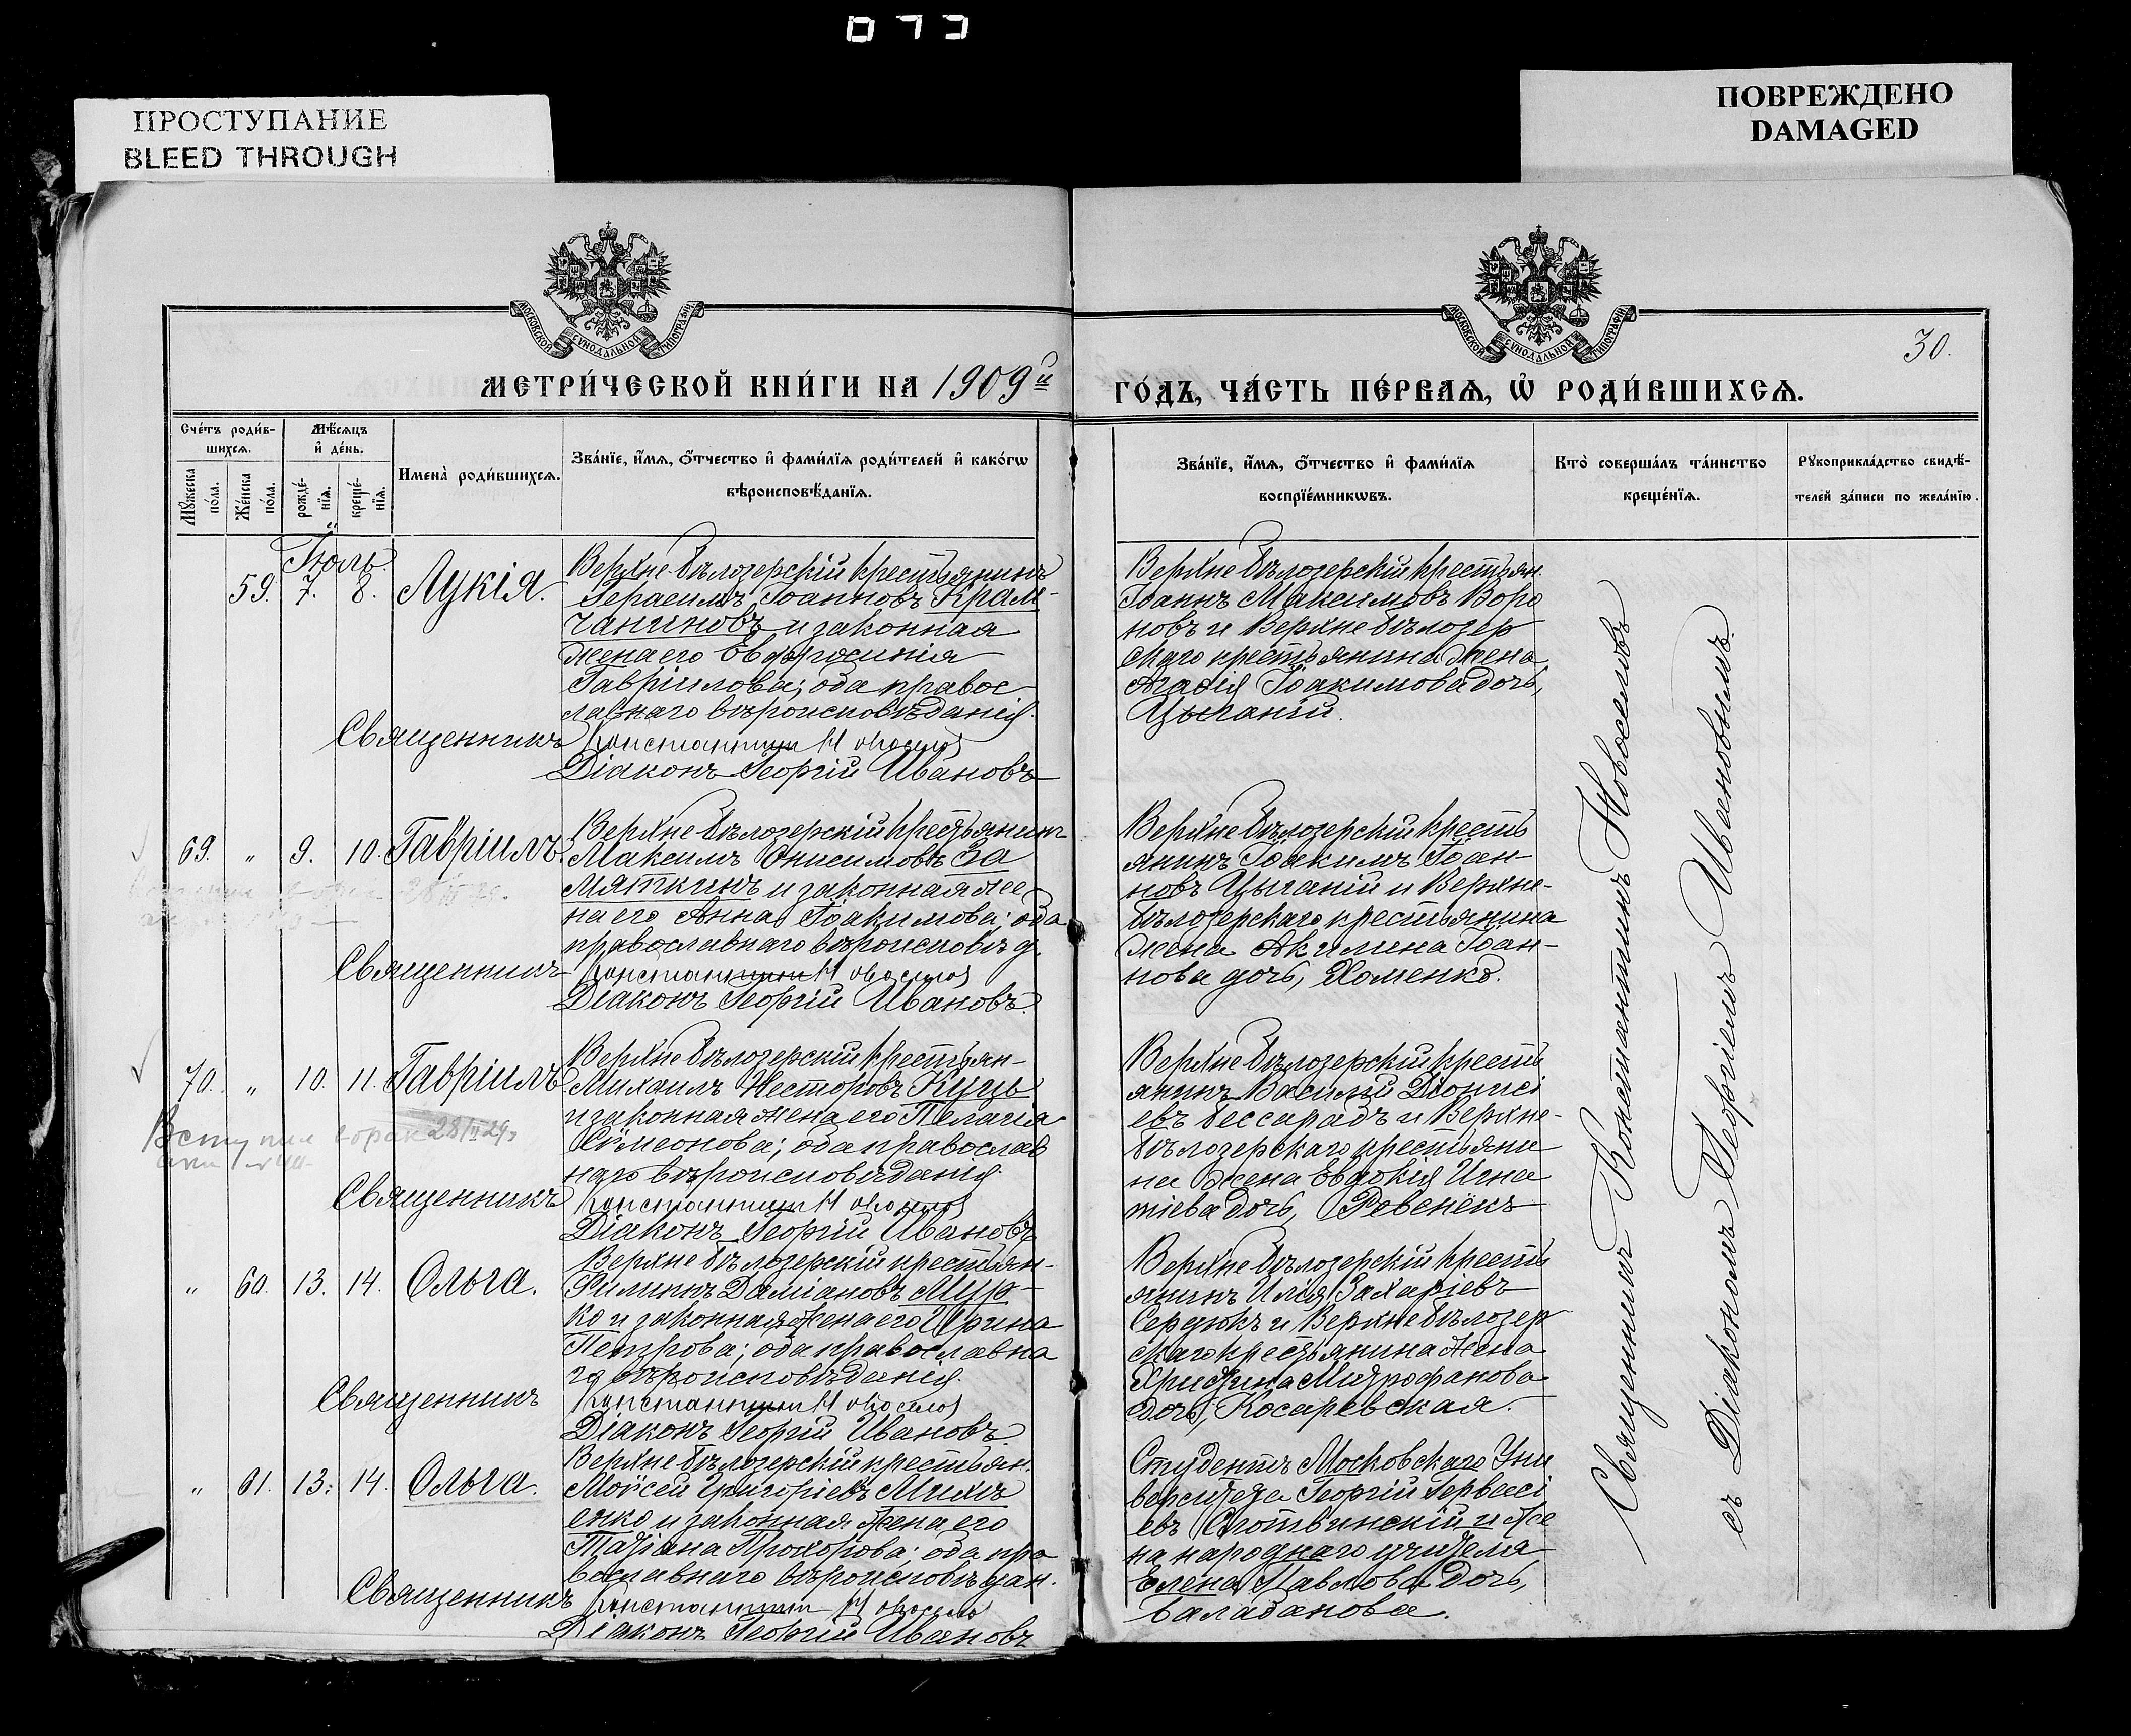 073
ПРОСТУПАНИЕ
BLEED THROUGH
ПОВРЕЖДЕНО
DAMAGED
МОСКОВСКОЙ СѴНОДАЛЬНОЙ ТИПОГРАФІИ
МОСКОВСКОЙ СѴНОДАЛЬНОЙ ТИПОГРАФІИ
30.
МЕТРИ́ЧЕСКОЙ КНИ́ГИ НА 1909й
ГО́ДЪ, ЧА́СТЬ ПЕ́РВАѦ, Ѡ҆ РОДИ́ВШИХСѦ.
Сче́тъ роди́в-
шихсѧ.
Мꙋ́жеска по́ла.
Же́нска по́ла.
Мѣ́сѧцъ
и҆ де́нь.
рожде́-
нїѧ.
креще́-
нїѧ.
Имена̀ роди́вшихсѧ.
Зва́нїе, и҆́мѧ, ѻ҆́тчество и҆ фами́лїѧ роди́телей и҆ како́гѡ
вѣроисповѣ́данїѧ.
Зва́нїе, и҆́мѧ, ѻ҆́тчество и҆ фами́лїѧ
воспрїе́мникѡвъ.
Кто̀ соверша́лъ та́инство
креще́нїѧ.
Рꙋкоприкла́дство свидѣ́-
телей за́писи по жела́нїю.
Іюль.
59. 7. 8. Лукія.
Верхне-бѣлозерскій крестьянинъ
Герасимъ Іоанновъ Крам-
чаниновъ и законная
жена его Евфросинія
Гавріилова; оба правос-
лавнаго вѣроисповѣданія.
Священникъ Константин Новоселов
Діаконъ Георгій Ивановъ
Верхне бѣлозерскій крестьян.
Іоаннъ Максимовъ Воро
новъ и Верхне бѣлозер
скаго крестьянина жена
Агафія Іоакимова дочь,
Цыганій.
69. " 9. 10. Гавріилъ.
Верхне-бѣлозерскій крестьянинъ
Максимъ Онисимовъ За
мяткинъ и законная же
на его Анна Іоакимова; оба
православнаго вѣроисповѣд.
Священникъ Константин Новоселов
Діаконъ Георгій Ивановъ.
Верхне бѣлозерскій кресть
янинъ Іоакимъ Іоан-
новъ Цыганій и Верхне-
бѣлозерскаго крестьянина
жена Акилина Іоан-
нова дочь, Хоменко.
70. " 10. 11. Гавріилъ
Верхне бѣлозерскій крестьян-
Михаилъ Несторовъ Куць
и законная жена его Пелагія
Сѵмеонова; оба православ
наго вѣроисповѣданія.
Вступил в брак 28/II 29г
Священникъ Константин Новоселов
Діаконъ Георгій Ивановъ
Верхне бѣлозерскій кресть
янинъ Василій Діонисі
евъ Бессарабъ и Верхне-
бѣлозерскаго крестьяни
на жена Евдокія Игна
тіева дочь, Ревенёкъ
" 60. 13. 14. Ольга.
Верхне бѣлозерскій крестьян-
Филиппъ Даміановъ Мур-
ко и законная жена его Ирина
Петрова; оба православна
го вѣроисповѣданія.
Священникъ Константин Новоселов
Діаконъ Георгій Ивановъ.
Верхне бѣлозерскій кресть
янинъ Илія Захаріевъ
Сердюкъ и Верхне бѣлозер
скаго крестьянина жена
Христина Митрофанова
дочь, Косаревская.
" 61. 13. 14. Ольга.
Верхне бѣлозерскій крестьян.
Моѵсей Григоріевъ Михѣ
енко и законная жена его
Татіана Прохорова; оба пра
вославнаго вѣроисповѣдан.
Священникъ Константин Новосело
Діаконъ Георгій Ивановъ
Студентъ Московскаго Уни
верситета Георгій Гервасі
евъ Слотвинскій и же
на народнаго учителя
Елена Павлова дочь,
Балабанова.
Священникъ Константинъ Новоселовъ
съ Діакономъ Георгіемъ Ивановымъ.